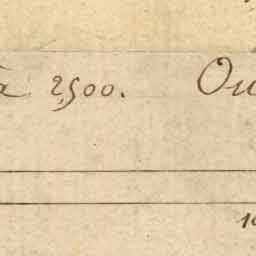 a 2,500. Ou
1